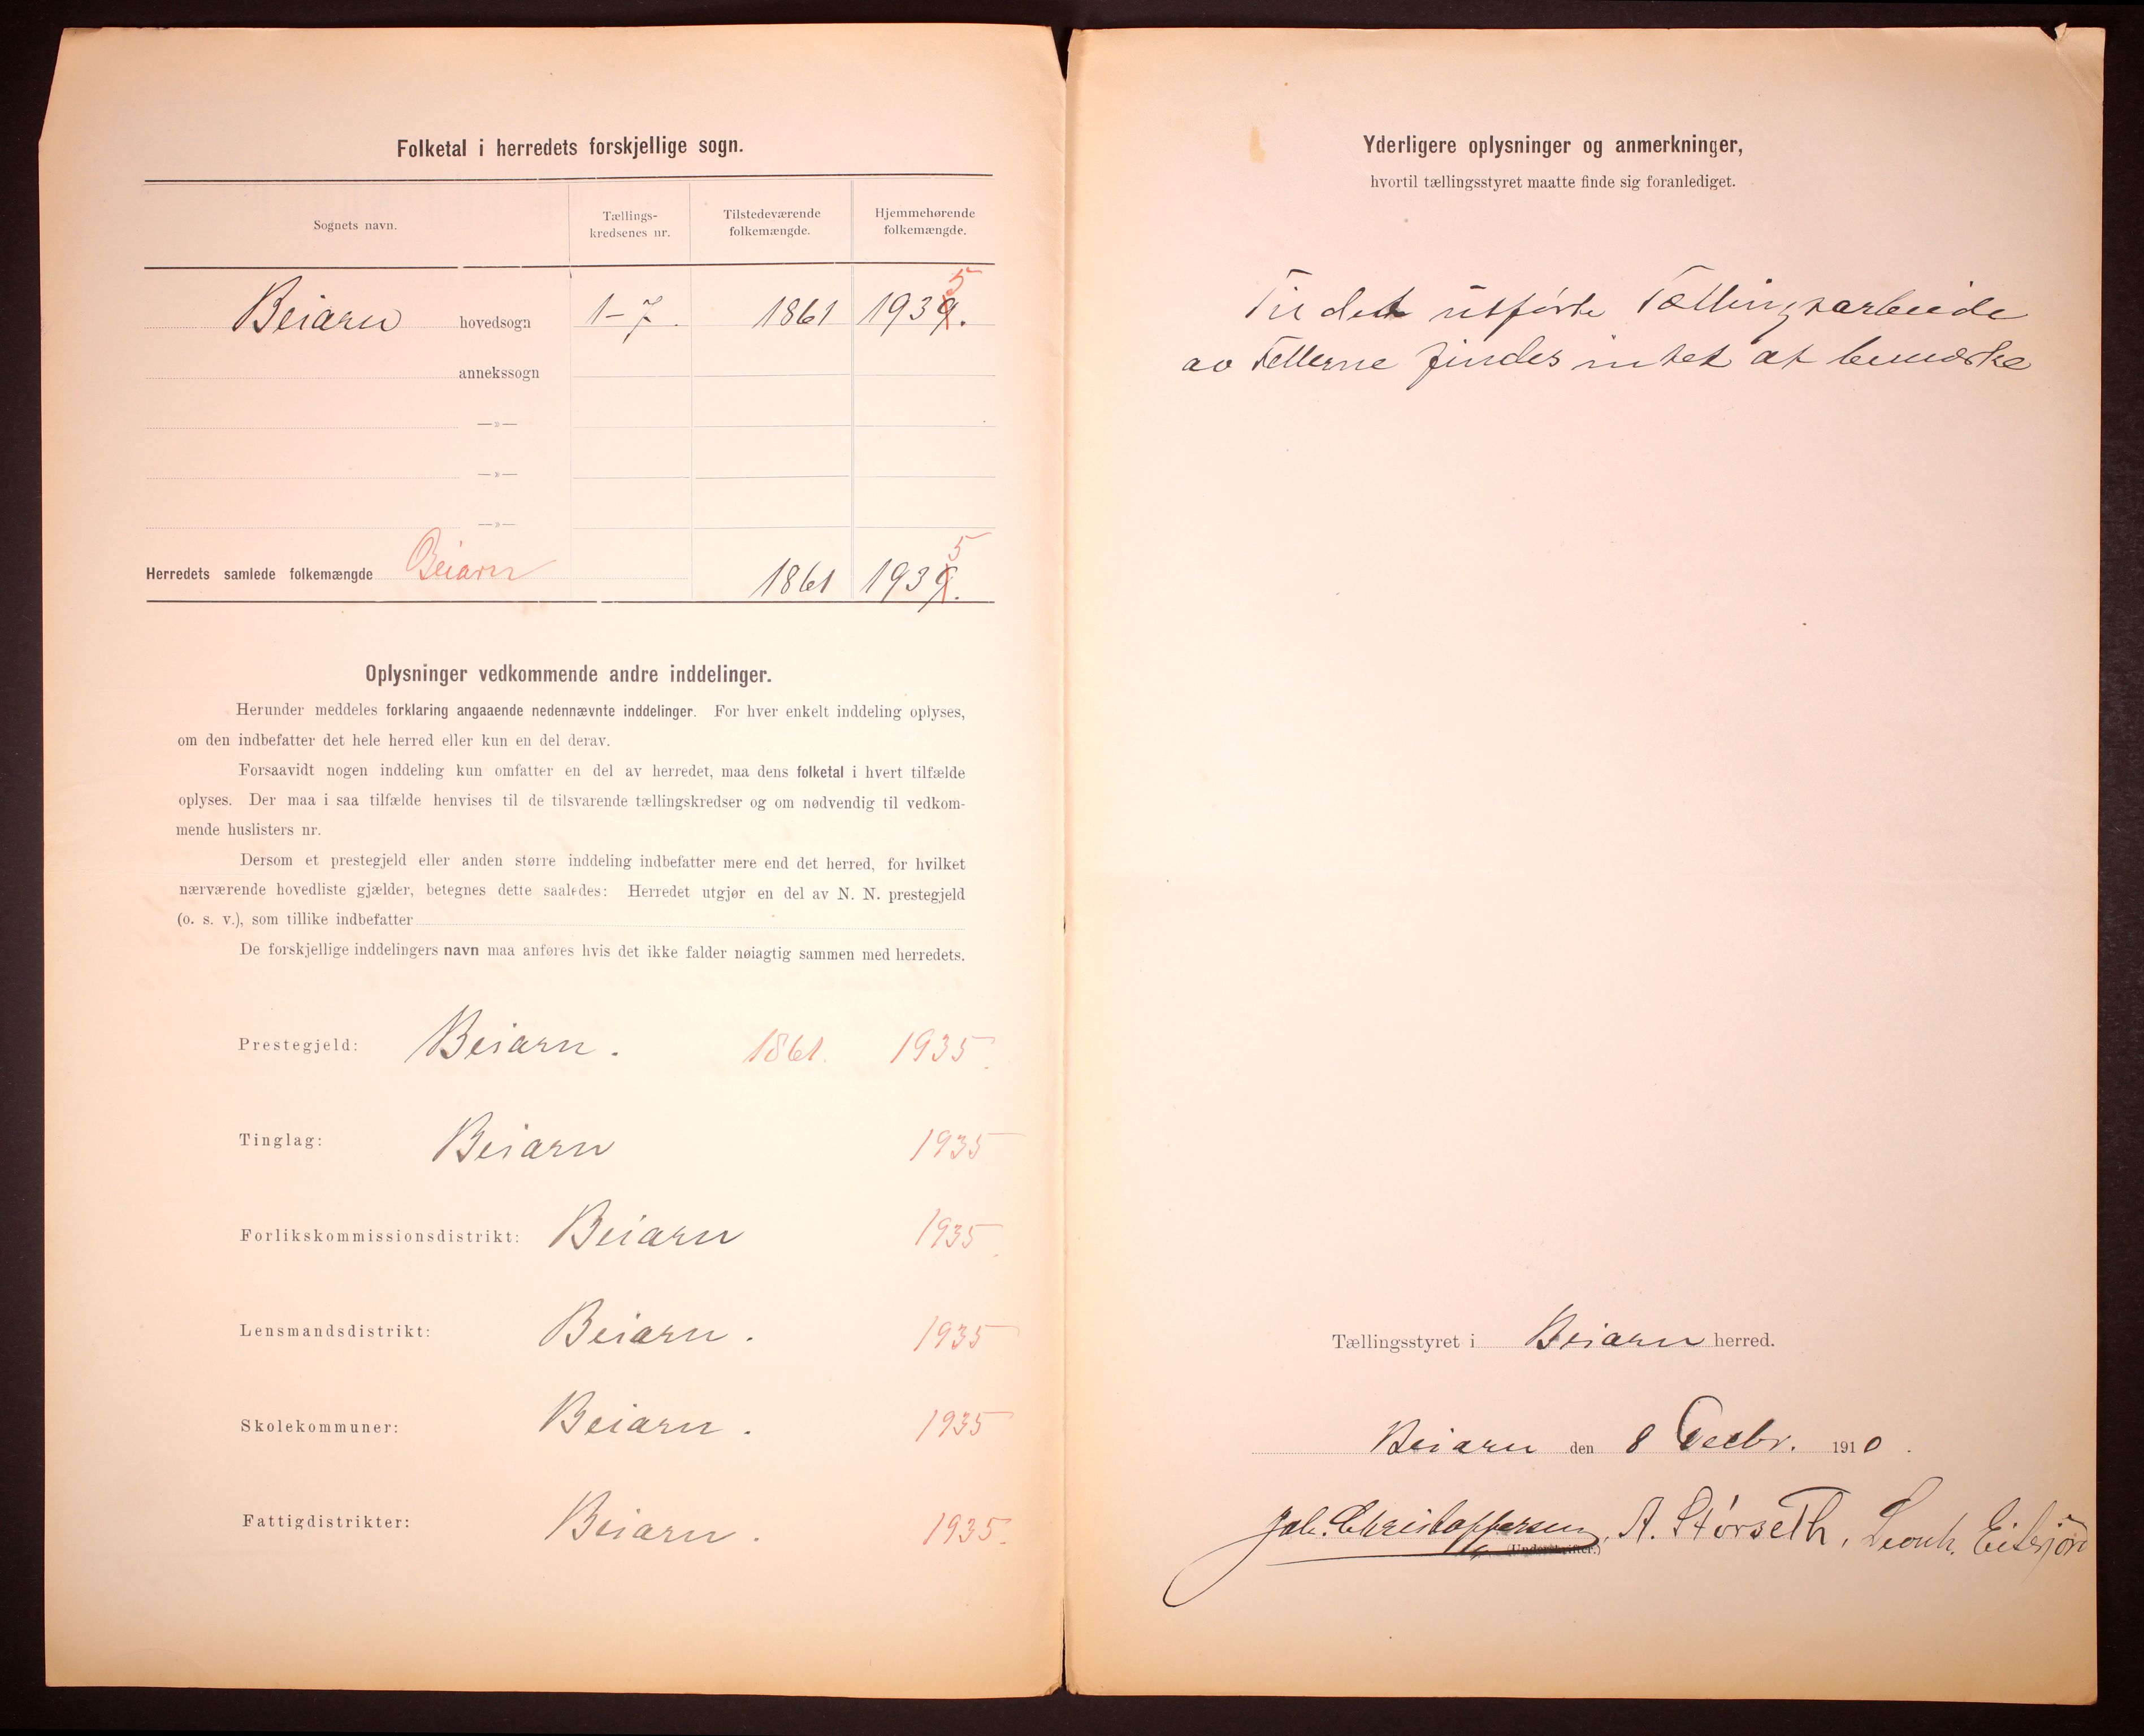 Folketal i herredets forskjellige sogn.
Sognets navn.
Tællings-
kredsenes nr.
Tilstedeværende
folkemængde.
Hjemmehørende
folkemængde.
5
Beiarn hovedsogn 1-7. 1861 1939.
annekssogn
—»—
—»—
—»—
5
Herredets samlede folkemængde Beiarn 1861 1939.
Oplysninger vedkommende andre inddelinger.
Herunder meddeles forklaring angaaende nedennævnte inddelinger. For hver enkelt inddeling oplyses,
om den indbefatter det hele herred eller kun en del derav.
Forsaavidt nogen inddeling kun omfatter en del av herredet, maa dens folketal i hvert tilfælde
oplyses. Der maa i saa tilfælde henvises til de tilsvarende tællingskredser og om nødvendig til vedkom-
mende huslisters nr.
Dersom et prestegjeld eller anden større inddeling indbefatter mere end det herred, for hvilket
nærværende hovedliste gjælder, betegnes dette saaledes: Herredet utgjør en del av N. N. prestegjeld
(o. s. v.), som tillike indbefatter
De forskjellige inddelingers navn maa anføres hvis det ikke falder nøiagtig sammen med herredets.
Prestegjeld: Beiarn. 1861. 1935.
Tinglag: Beiarn 1935
Forlikskommissionsdistrikt: Beiarn 1935.
Lensmandsdistrikt: Beiarn. 1935
Skolekommuner: Beiarn. 1935
Fattigdistrikter: Beiarn. 1935.
Yderligere oplysninger og anmerkninger,
hvortil tællingsstyret maatte finde sig foranlediget.
Til det utførte Tællingsarbeide
av Tellerne findes intet at bemærke
Tællingsstyret i Beiarn herred.
Beiarn den 8 Decbr. 1910.
Joh. Christoffersen, A. Størseth, Leonh. Eitesjord
(Underskrifter.)